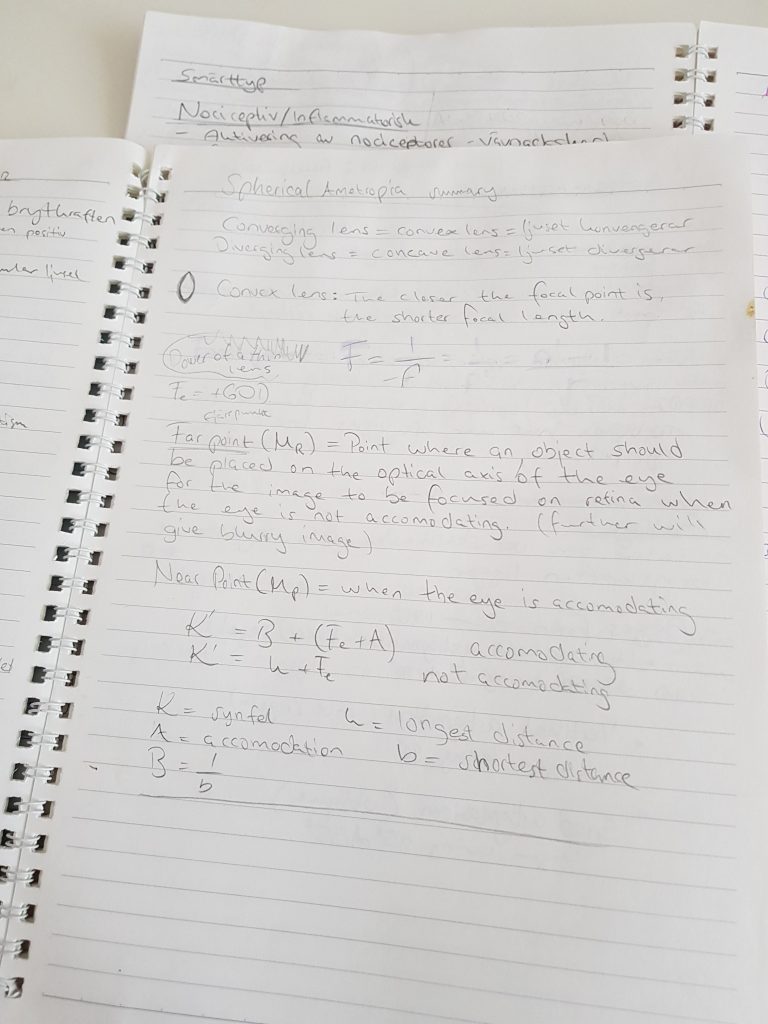 Smärttyp
Nociceptiv/Inflammatorisk
- Aktivering av nociceptorer -
brytkraften
positiv
ljuset
Spherical Ametropia summary
Converging lens = convex lens = ljuset konvergerar
Diverging lens = concave lens = ljuset divergerar
Convex lens: The closer the focal point is,
the shorter focal length.
Power of a thin
lens
F = 1
-f
Fe = +60D
Far point (MR) = Point where an object should
be placed on the optical axis of the eye
for the image to be focused on retina when
the eye is not accomodating. (further will
give blurry image)
Near Point (Mp) = when the eye is accomodating
K' = B + (Fe + A) accomodating
K' = k + Fe not accomodating
K = synfel k = longest distance
A = accomodation b = shortest distance
B = 1
b